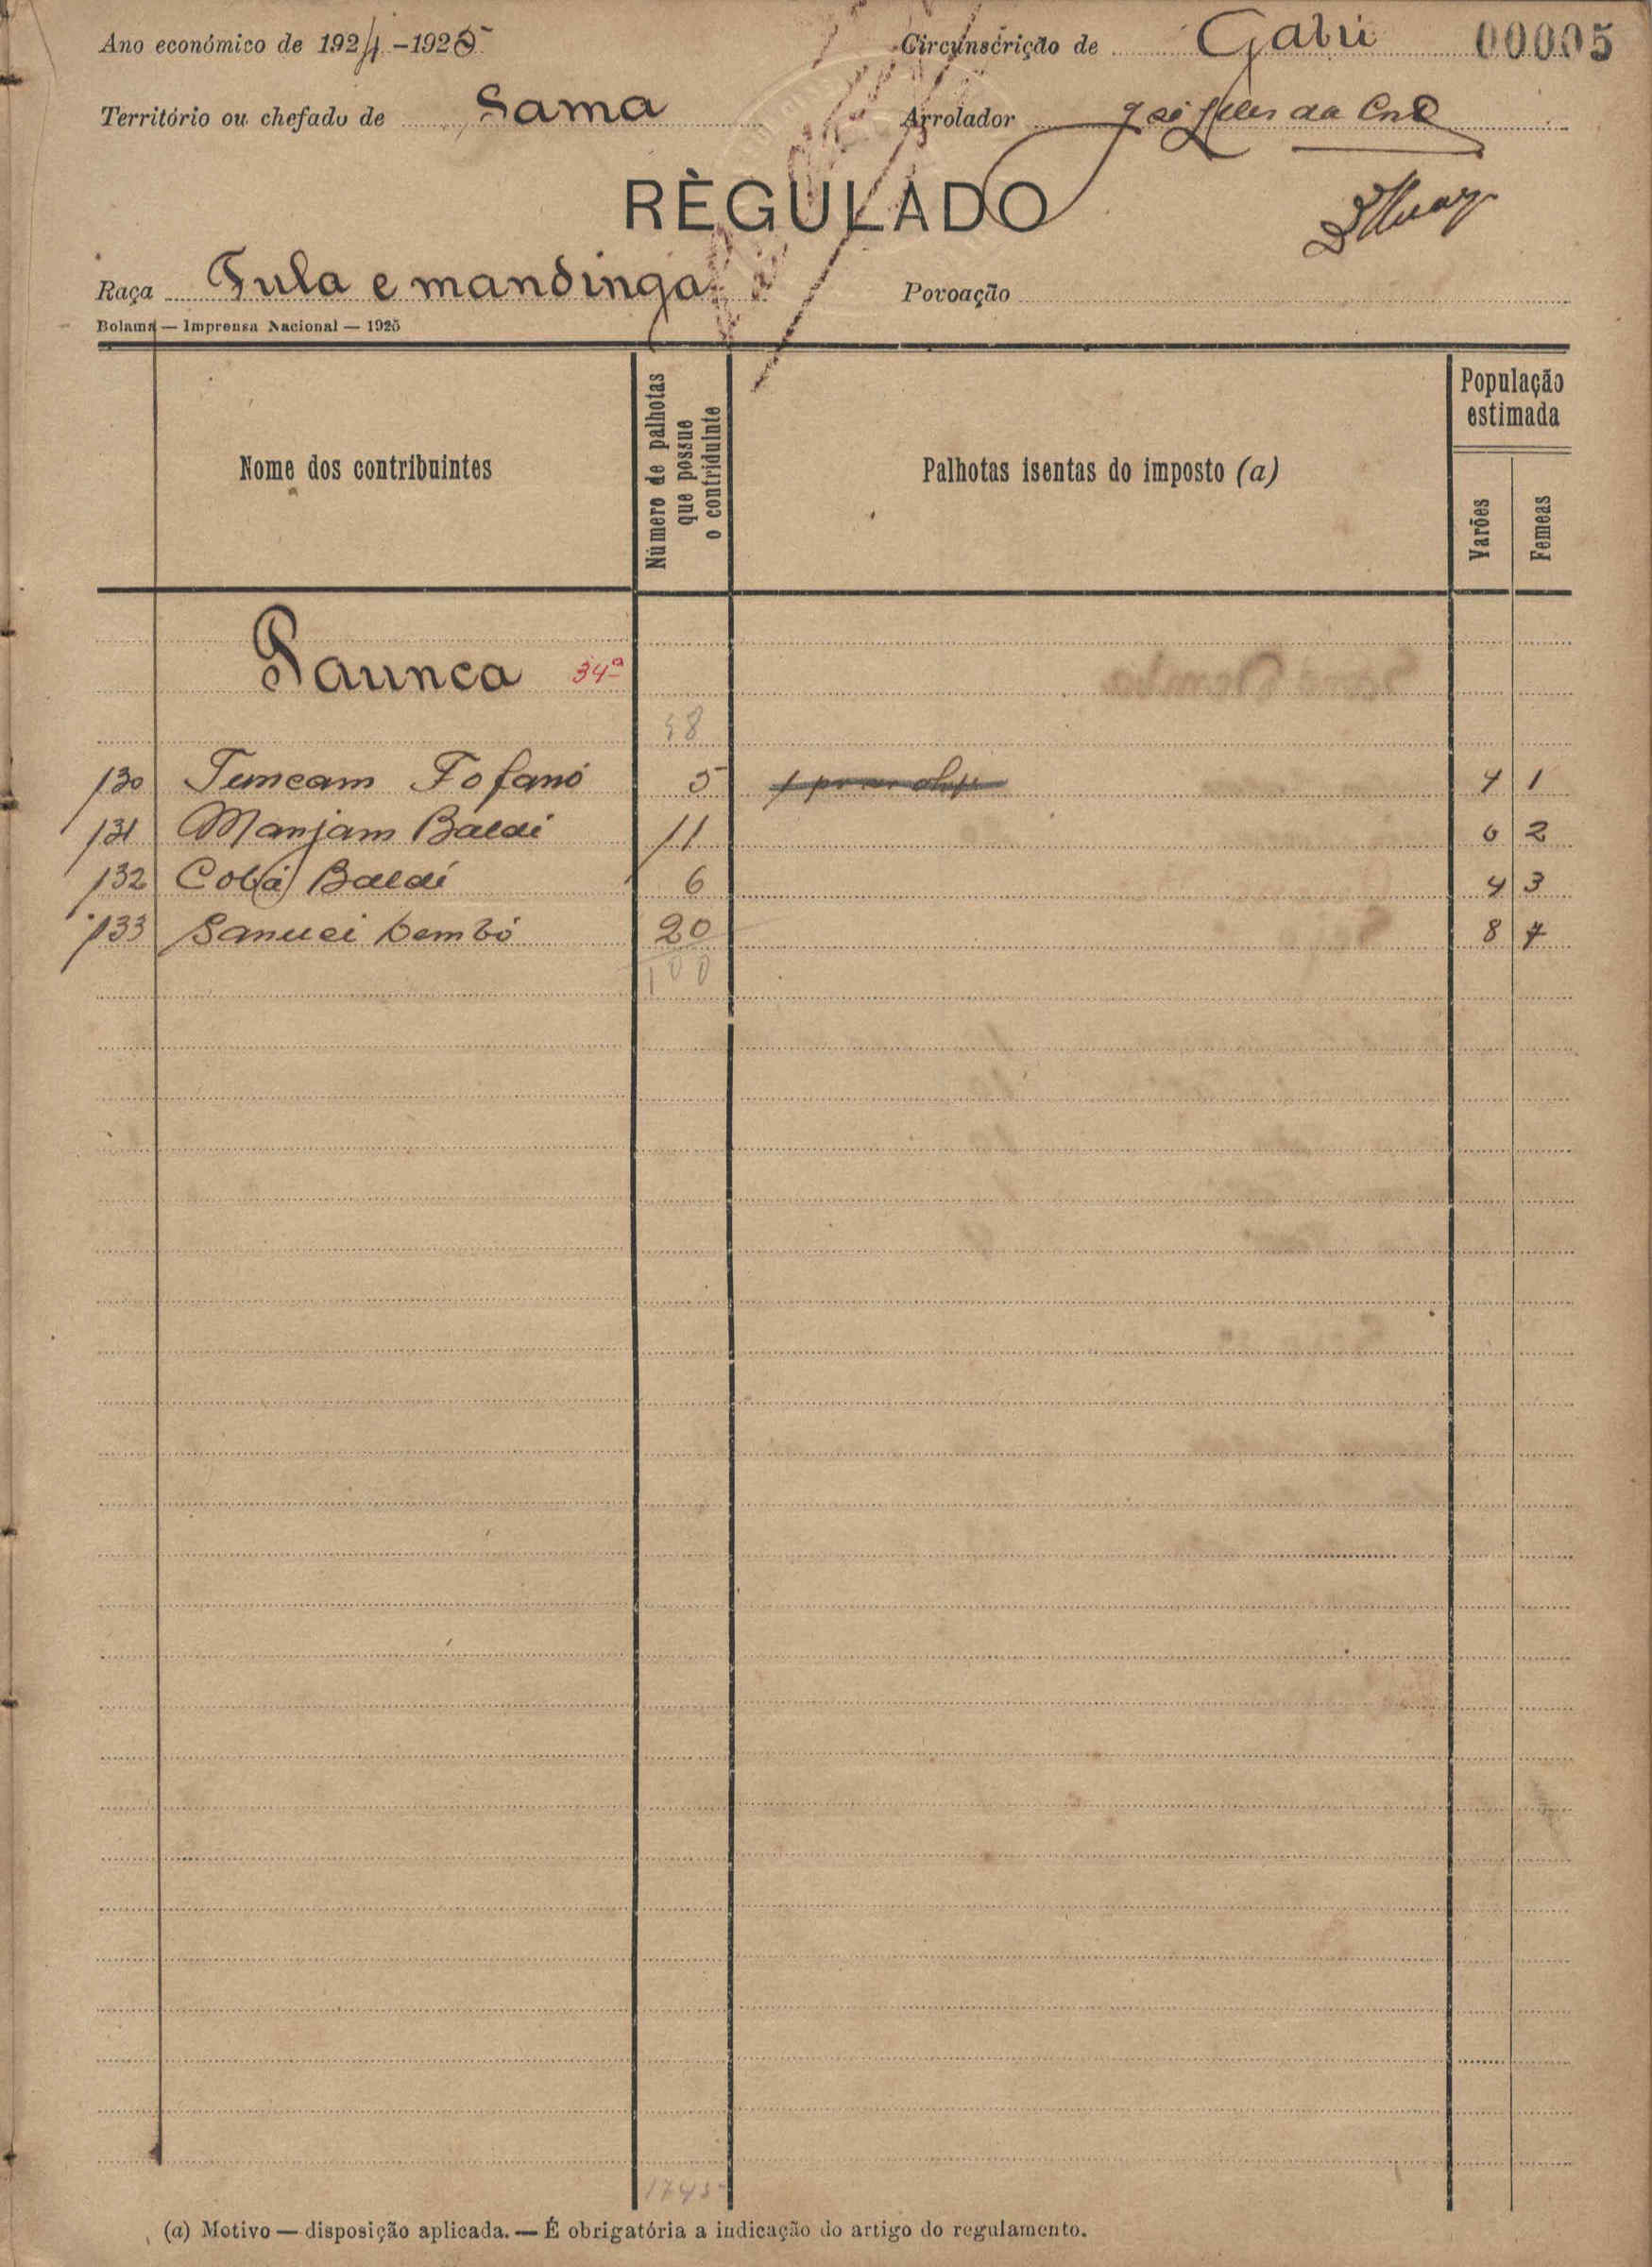 Ano económico de 1924-1925 Circunscrição de Gabú 00005
Território ou chefado de Sama Arrolador José da
RÈGULADO
Raça Fula e mandinga Povoação
Bolama — Imprensa Nacional — 1925
Nome dos contribuintes
Número de palhotas
que possue
o contriduinte
Palhotas isentas do imposto (a)
População
estimada
Varões
Femeas
Paunca 34ª
130 Temeam Fofanó 5 4 1
131 Manjam Baldé 11 6 2
132 Cobá Baldé 6 4 3
133 Sanuei Dembó 20 8 7
100
1743
(a) Motivo — disposição aplicada. — É obrigatória a indicação do artigo do regulamento.